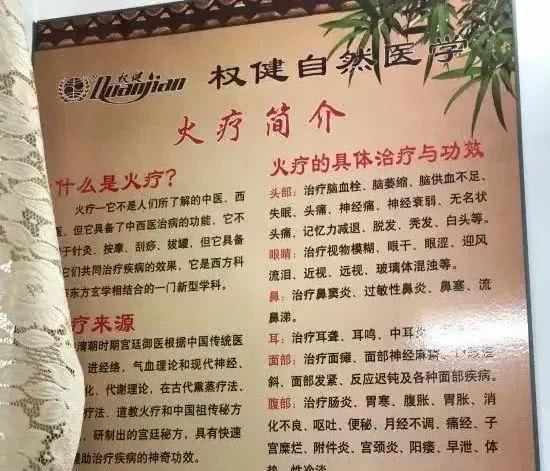 权健
Quanjian
权健自然医学
火疗简介
什么是火疗?
火疗一它不是人们所了解的中医、西
但它具备了中西医治病的功能，它不
于针灸、按摩、刮痧、拔罐，但它具备
它们共同治疗疾病的效果，它是西方科
东方玄学相结合的一门新型学科。
疗来源
清朝时期宫廷御医根据中国传统医
进经络，气血理论和现代神经、
化、代谢理论，在古代熏蒸疗法、
疗法、道教火疗和中国祖传秘方
研制出的宫廷秘方，具有快速
助治疗疾病的神奇功效。
火疗的具体治疗与功效
头部：治疗脑血栓、脑萎缩、脑供血不足、
失眠、头痛、神经痛、神经衰弱、无名状
头痛、记忆力减退、脱发、秃发、白头等。
眼睛：治疗视物模糊、眼干、眼涩、迎风
流泪、近视、远视、玻璃体混浊等。
鼻：治疗鼻窦炎、过敏性鼻炎、鼻塞、流
鼻涕。
耳：治疗耳聋、耳鸣、中耳
面部：治疗面瘫、面部神经麻痹、
斜、面部发紧、反应迟钝及各种面部疾病。
腹部：治疗肠炎、胃寒、腹胀、胃胀、消
化不良、呕吐、便秘、月经不调、痛经、子
宫糜烂、附件炎、宫颈炎、阳痿、早泄、体
性冷淡